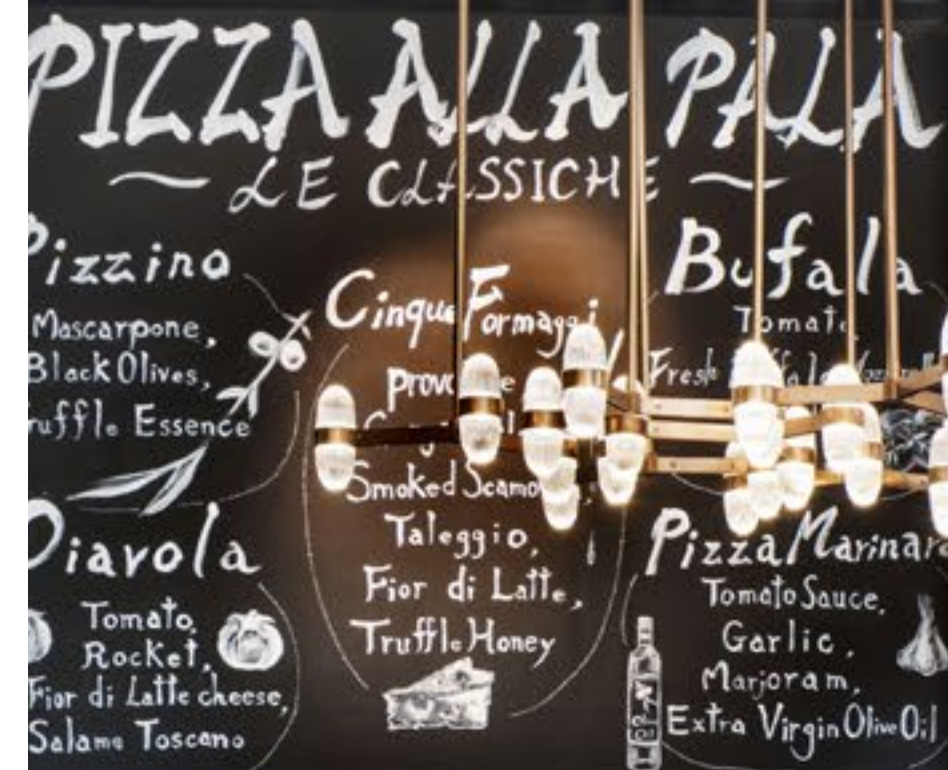 PIZZA ALLA PALA
LE CLASSICHE
Pizzino
Mascarpone,
Black Olives,
Truffle Essence
Diavola
Tomato,
Rocket,
Fior di Latte cheese,
Salame Toscano
Cinque Formaggi
Smoked
Taleggio,
Fior di Latte,
Truffle Honey
Bufala
Tomato
Fresh
Pizza Marinara
Tomato Sauce,
Garlic,
Marjoram,
Extra Virgin Olive Oil